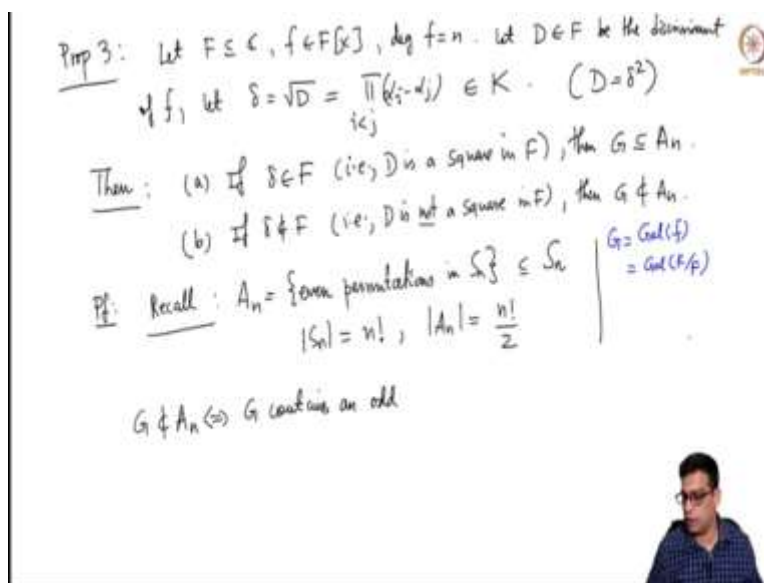 Prop 3: Let F ⊆ ℂ, f ∈ F[x], deg f = n. Let D ∈ F be the discriminant
of f, let δ = √D = ∏_{i<j} (αi - αj) ∈ K. (D = δ²)
Then: (a) If δ ∈ F (i.e., D is a square in F), then G ⊆ An.
(b) If δ ∉ F (i.e., D is not a square in F), then G ⊄ An.
G = Gal(f)
= Gal(K/F)
Pf: Recall: An = {even permutations in Sn} ⊆ Sn
|Sn| = n!, |An| = n!/2
G ⊄ An ⟺ G contains an odd